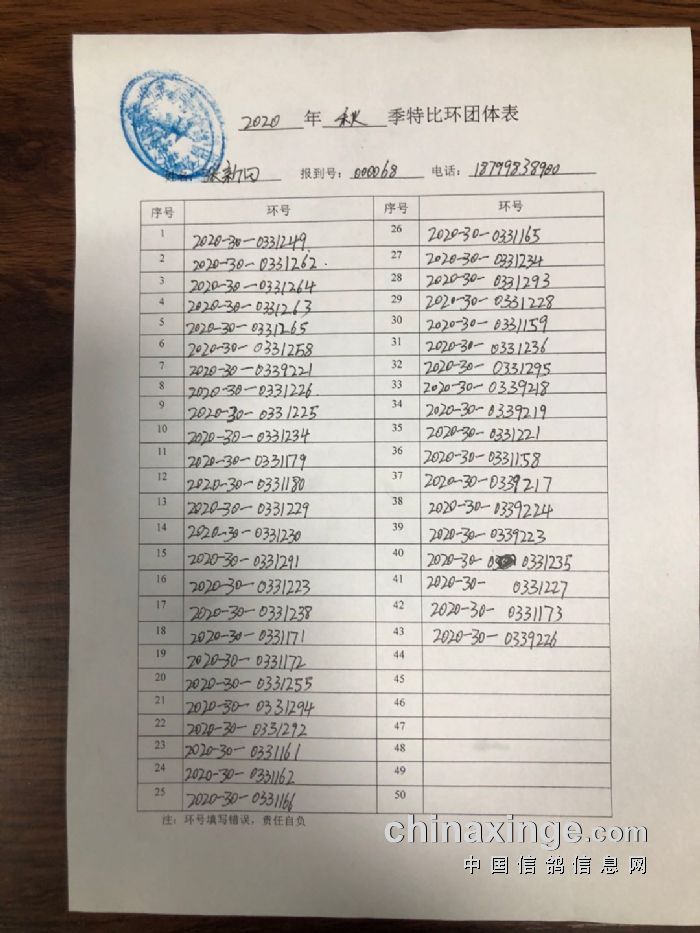 2020 年 秋 季特比环团体表
姓名: 张新田 报到号: 000068 电话: 18799838900
序号 环号 序号 环号
1 2020-30-0331249 26 2020-30-0331165
2 2020-30-0331262 27 2020-30-0331234
3 2020-30-0331264 28 2020-30-0331293
4 2020-30-0331263 29 2020-30-0331228
5 2020-30-0331265 30 2020-30-0331159
6 2020-30-0331258 31 2020-30-0331236
7 2020-30-0339221 32 2020-30-0331295
8 2020-30-0331226 33 2020-30-0339218
9 2020-30-0331225 34 2020-30-0339219
10 2020-30-0331234 35 2020-30-0331221
11 2020-30-0331179 36 2020-30-0331158
12 2020-30-0331180 37 2020-30-0339217
13 2020-30-0331229 38 2020-30-0339224
14 2020-30-0331230 39 2020-30-0339223
15 2020-30-0331291 40 2020-30-0331235
16 2020-30-0331223 41 2020-30-0331227
17 2020-30-0331238 42 2020-30-0331173
18 2020-30-0331171 43 2020-30-0339226
19 2020-30-0331172 44
20 2020-30-0331255 45
21 2020-30-0331294 46
22 2020-30-0331292 47
23 2020-30-0331161 48
24 2020-30-0331162 49
25 2020-30-0331166 50
注: 环号填写错误, 责任自负
chinaxinge.com
中国信鸽信息网